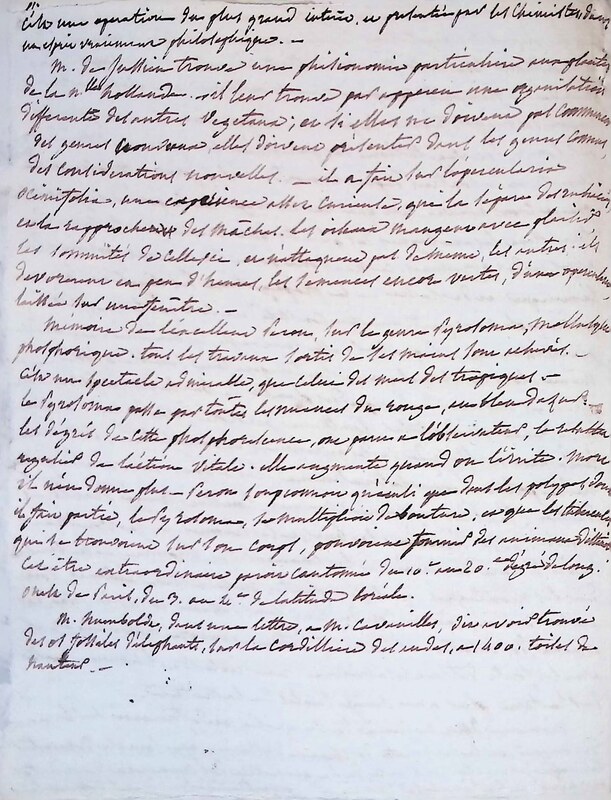 C'est une operation du plus grand interêt, et presentée par les Chimistes dans
un esprit vraiment philosophique. —
M. de Jussieu trouve une phisionomie particuliere aux plantes
de la nlle hollande. il leur trouve par apperçu une organisation
différente des autres vegetaux; et si elles ne doivent pas commencer
des genres nouveaux elles doivent presenter dans les genres connus
des considerations nouvelles. — il a fait sur l'opercularia
une expérience assez curieuse, qui la sépare des rubiacées
et la rapproche des mâches. les oiseaux mangent avec plaisir
les sommités de celle-ci, et n'attaquent pas de même, les autres. ils
devorerent en peu d'heures, les semences encore vertes, d'une opercularia
laissée sur une fenêtre. —
Mémoire de l'excellent Peron, sur le genre Pyrosoma, mollusque
phosphorique. tous les travaux sortis de ses mains sont achevés. —
C'est un spectacle admirable, que celui des mers des tropiques —
le Pyrosoma passe par toutes les nuances du rouge, au bleu d'azur —
les dégrés de cette phosphorescence, ont paru à l'observateur, le resultat
regulier de l'action vitale. elle augmente quand on l'irrite. mort
il n'en donne plus — Peron soupçonnoit qu'ainsi que dans les polypes dont
il fait partie, le Pyrosoma, se multiplioit de bouture, et que les tubercules
qui se trouvoient sur son corps, pouvoient fournir des animaux
Cet être extraordinaire paroit cantonné du 10e au 20e dégré de long.
ouest de Paris, du 3. au 4e. de latitude boréale.
M. Humboldt, dans une lettre, a M. Cavanilles, dit avoir trouvé
des os fossiles d'elephants, sur la cordilliere des andes, a 1400. toises de
hauteur. —